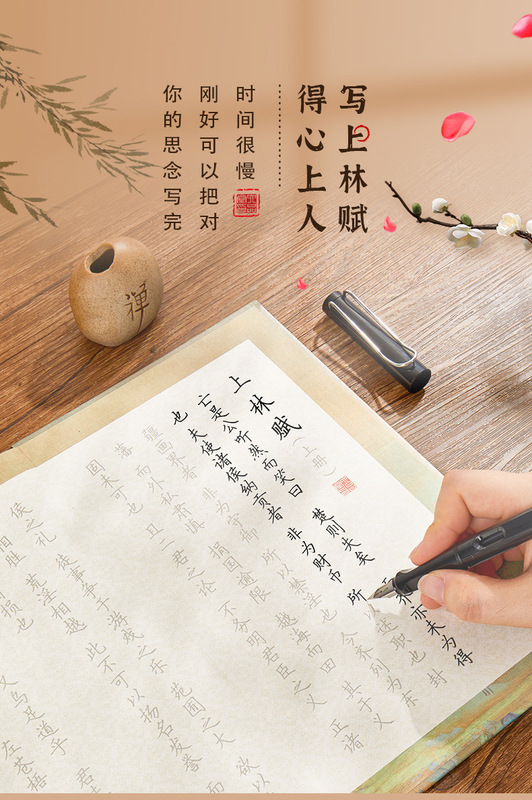 写上林赋
得心上人
时间很慢
刚好可以把对
你的思念写完
禅
上林赋（上册）
亡是公听然而笑曰 楚则失矣 而齐亦未为得
也 夫使诸侯纳贡者 非为财币 所以述职也 封
疆画界者 非为守御 所以禁淫也 今齐列为
藩 而外私肃慎 捐国逾限 越海而田 其于义
固未可也 且二君之论 不务明君臣之义 正诸
侯之礼 徒事争于游戏之乐 苑囿之大 欲以
相胜 荒淫相越 此不可以扬名发誉
损也
又乌足道乎 君
左苍梧